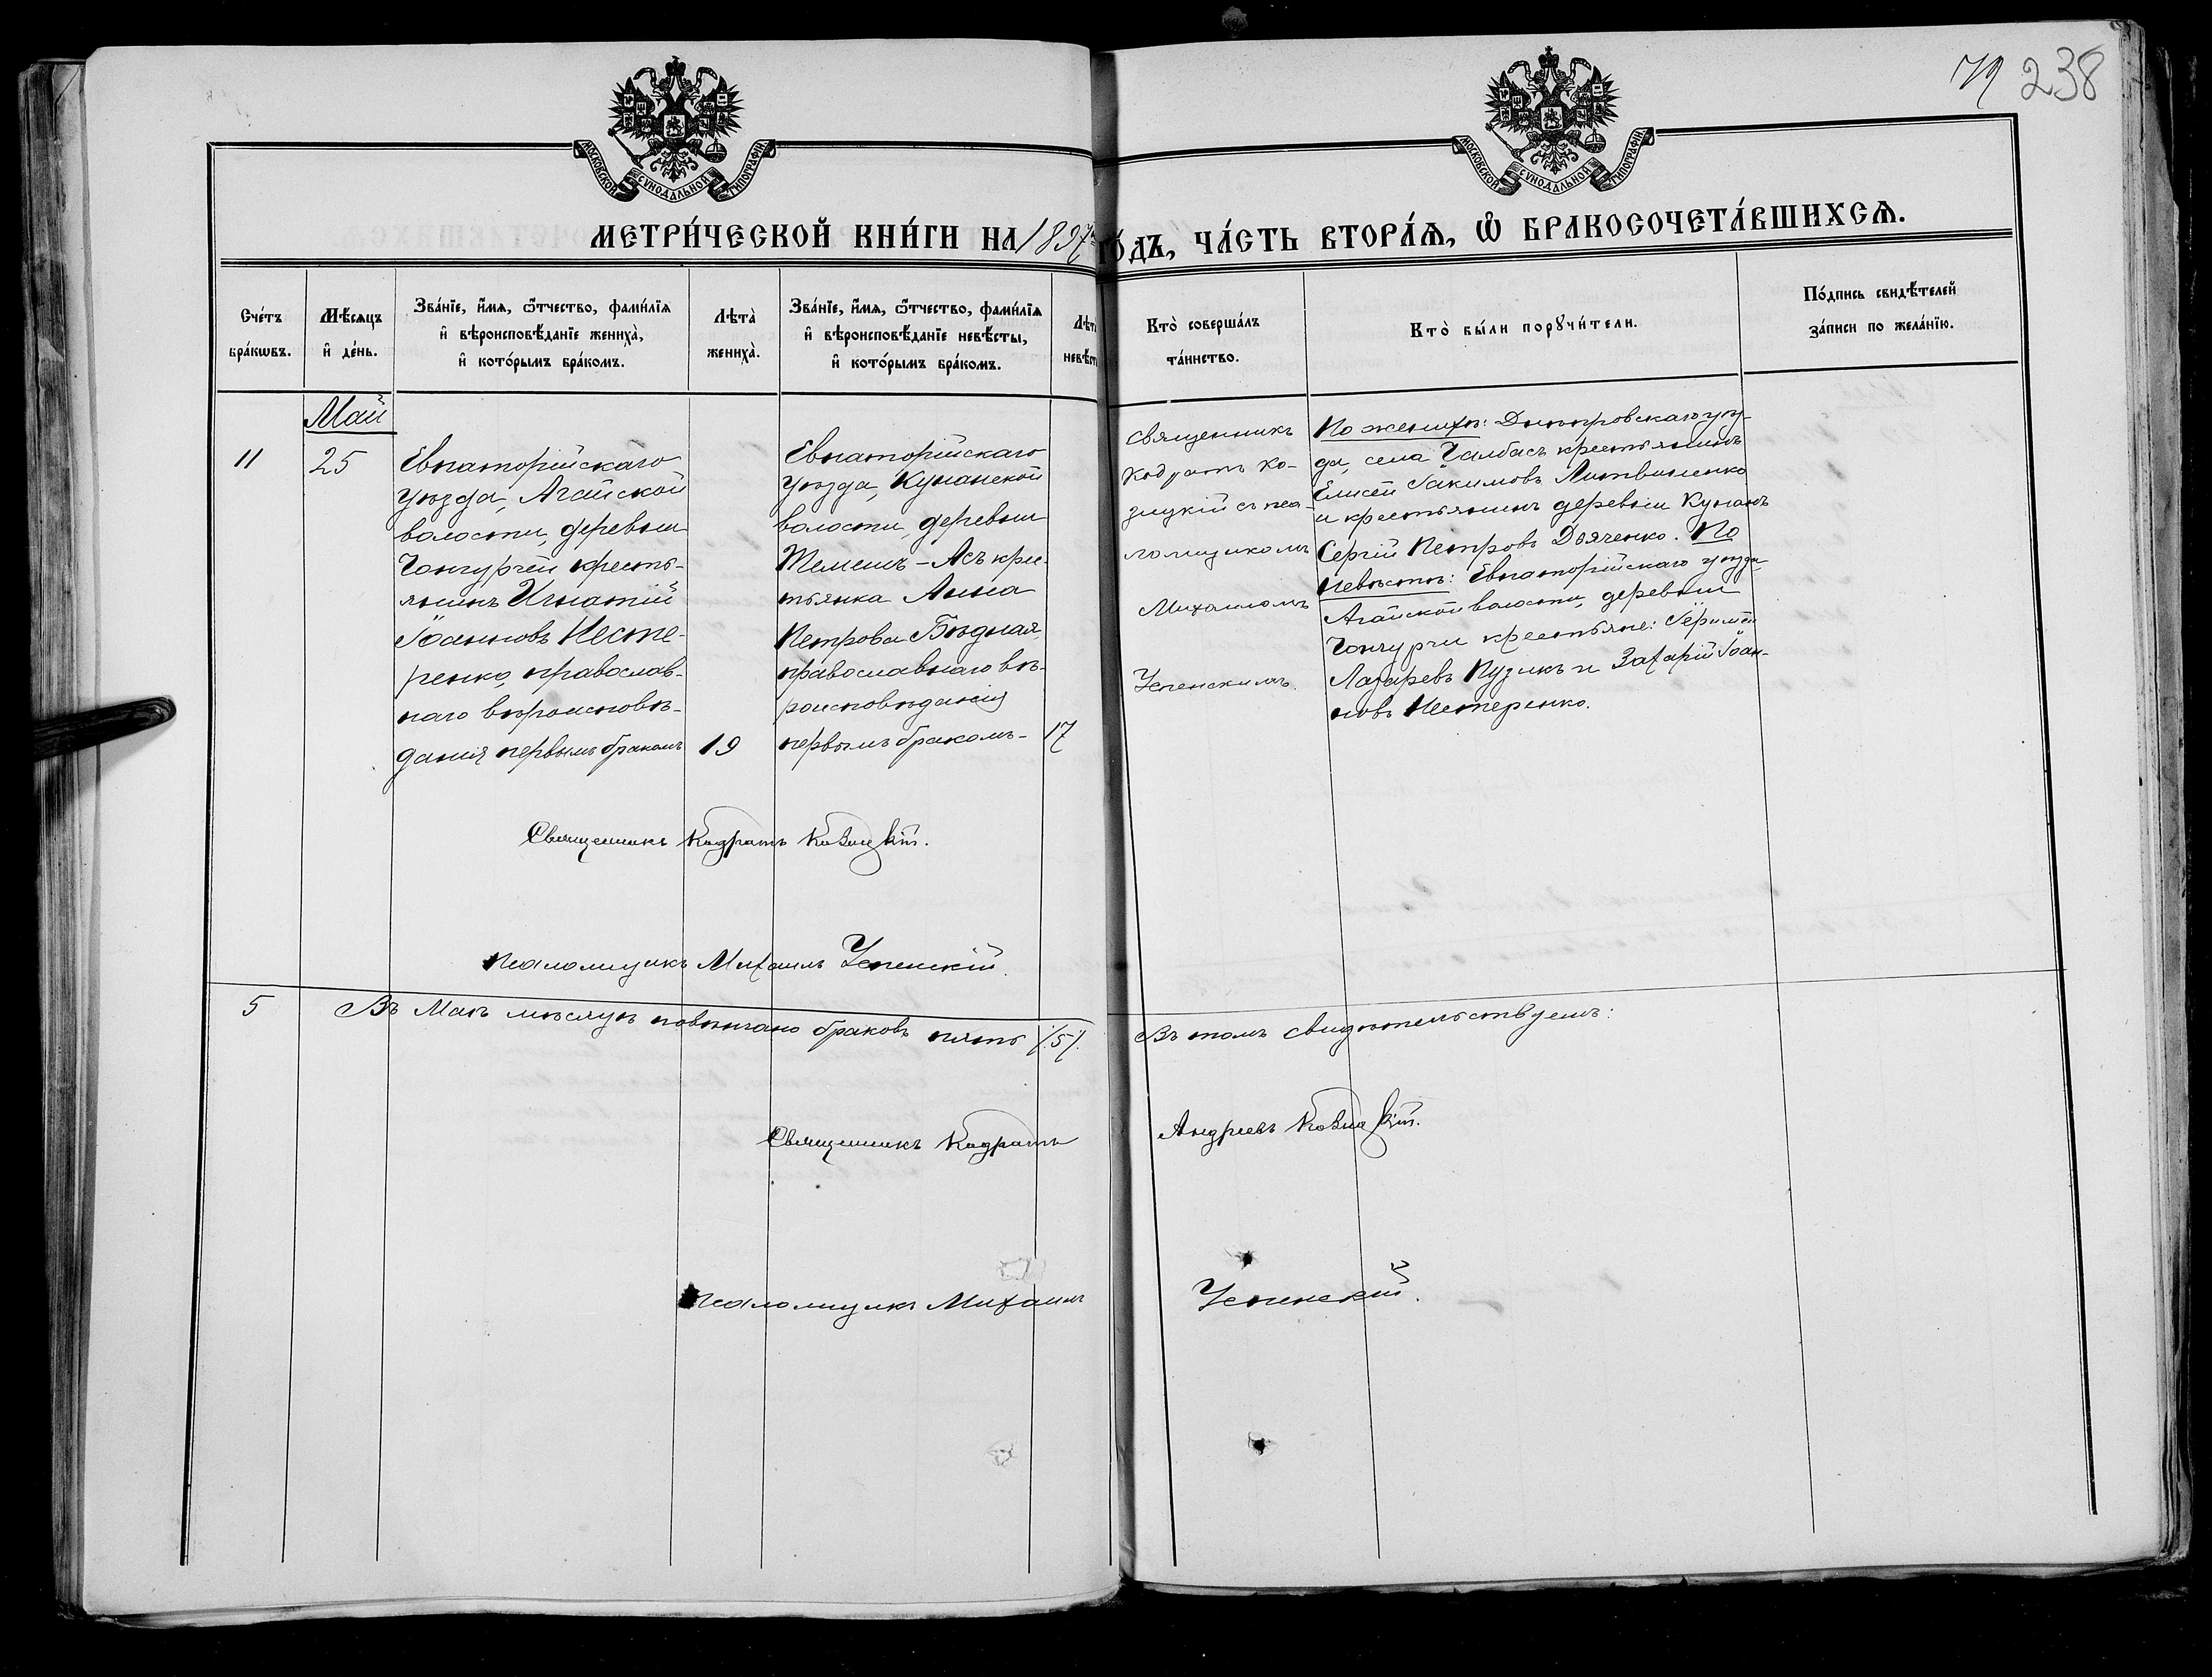 79 238
МОСКОВСКОЙ СѴНОДАЛЬНОЙ ТИПОГРАФІИ
МОСКОВСКОЙ СѴНОДАЛЬНОЙ ТИПОГРАФІИ
МЕТРИ́ЧЕСКОЙ КНИ́ГИ НА 1897 ГО́ДЪ, ЧА́СТЬ ВТОРА́Ѧ, Ѽ БРАКОСОЧЕТА́ВШИХСѦ.
Сче́тъ
бра́кѡвъ.
Мѣ́сяцъ
и҆ де́нь.
Зва́нїе, и҆́мя, ѻ҆́тчество, фами́лїя
и҆ вѣроисповѣ́данїе жениха̀,
и҆ кото́рымъ бра́комъ.
Лѣта̀
жениха̀.
Зва́нїе, и҆́мя, ѻ҆́тчество, фами́лїя
и҆ вѣроисповѣ́данїе невѣ́сты,
и҆ кото́рымъ бра́комъ.
Лѣт
невѣст
Кто̀ соверша́лъ
та́инство.
Кто̀ бы́ли порꙋчи́тели.
По́дпись свидѣ́телей
за́писи по жела́нїю.
Май
11
25
Евпаторійскаго
уѣзда, Агайской
волости, деревни
Чонгурчей кресть-
янинъ Игнатій
Іоанновъ Несте-
ренко, православ-
наго вѣроисповѣ-
данія первымъ бракомъ
19
Евпаторійскаго
уѣзда, Кунанской
волости, деревни
Темешъ-Асъ кре-
тьянка Анна
Петрова Бѣдная
православнаго вѣ-
роисповѣданія
первымъ бракомъ-
17
Священникъ
Кодратъ Ко-
зицкій съ пса-
ломщикомъ
Михаиломъ
Успенскимъ.
По женихѣ: Днѣпровскаго уѣз-
да, села Чалбасъ крестьянинъ
Елисей Іакимовъ Литвиненко
и крестьянинъ деревни Кунанъ
Сергій Петровъ Дяченко. По
невѣстѣ: Евпаторійскаго уѣзда
Агайской волости, деревни
Чонгурчи крестьяне:
Лазаревъ Пузикъ и Захарій Іоан-
новъ Нестеренко.
Священникъ Кодратъ Козицкій.
Псаломщикъ Михаилъ Успенскій.
5
Въ Маѣ мѣсяцѣ повѣнчано браковъ пять /:5/. Въ томъ свидѣтельствуемъ:
Священникъ Кодратъ Андреевъ Козицкій.
Псаломщикъ Михаилъ Успенскій.